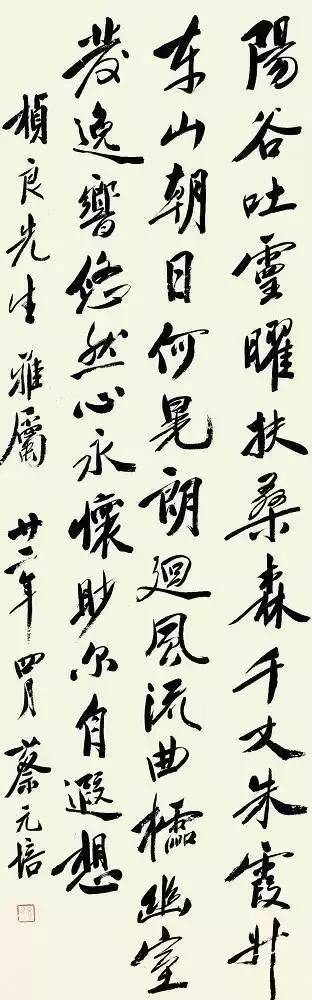 陽谷吐靈曜扶桑森千丈朱霞升
东山朝日何晃朗迴風流曲櫺幽室
發逸響悠然心永懷眇尔自遐想
楨良先生雅屬 廿二年四月 蔡元培